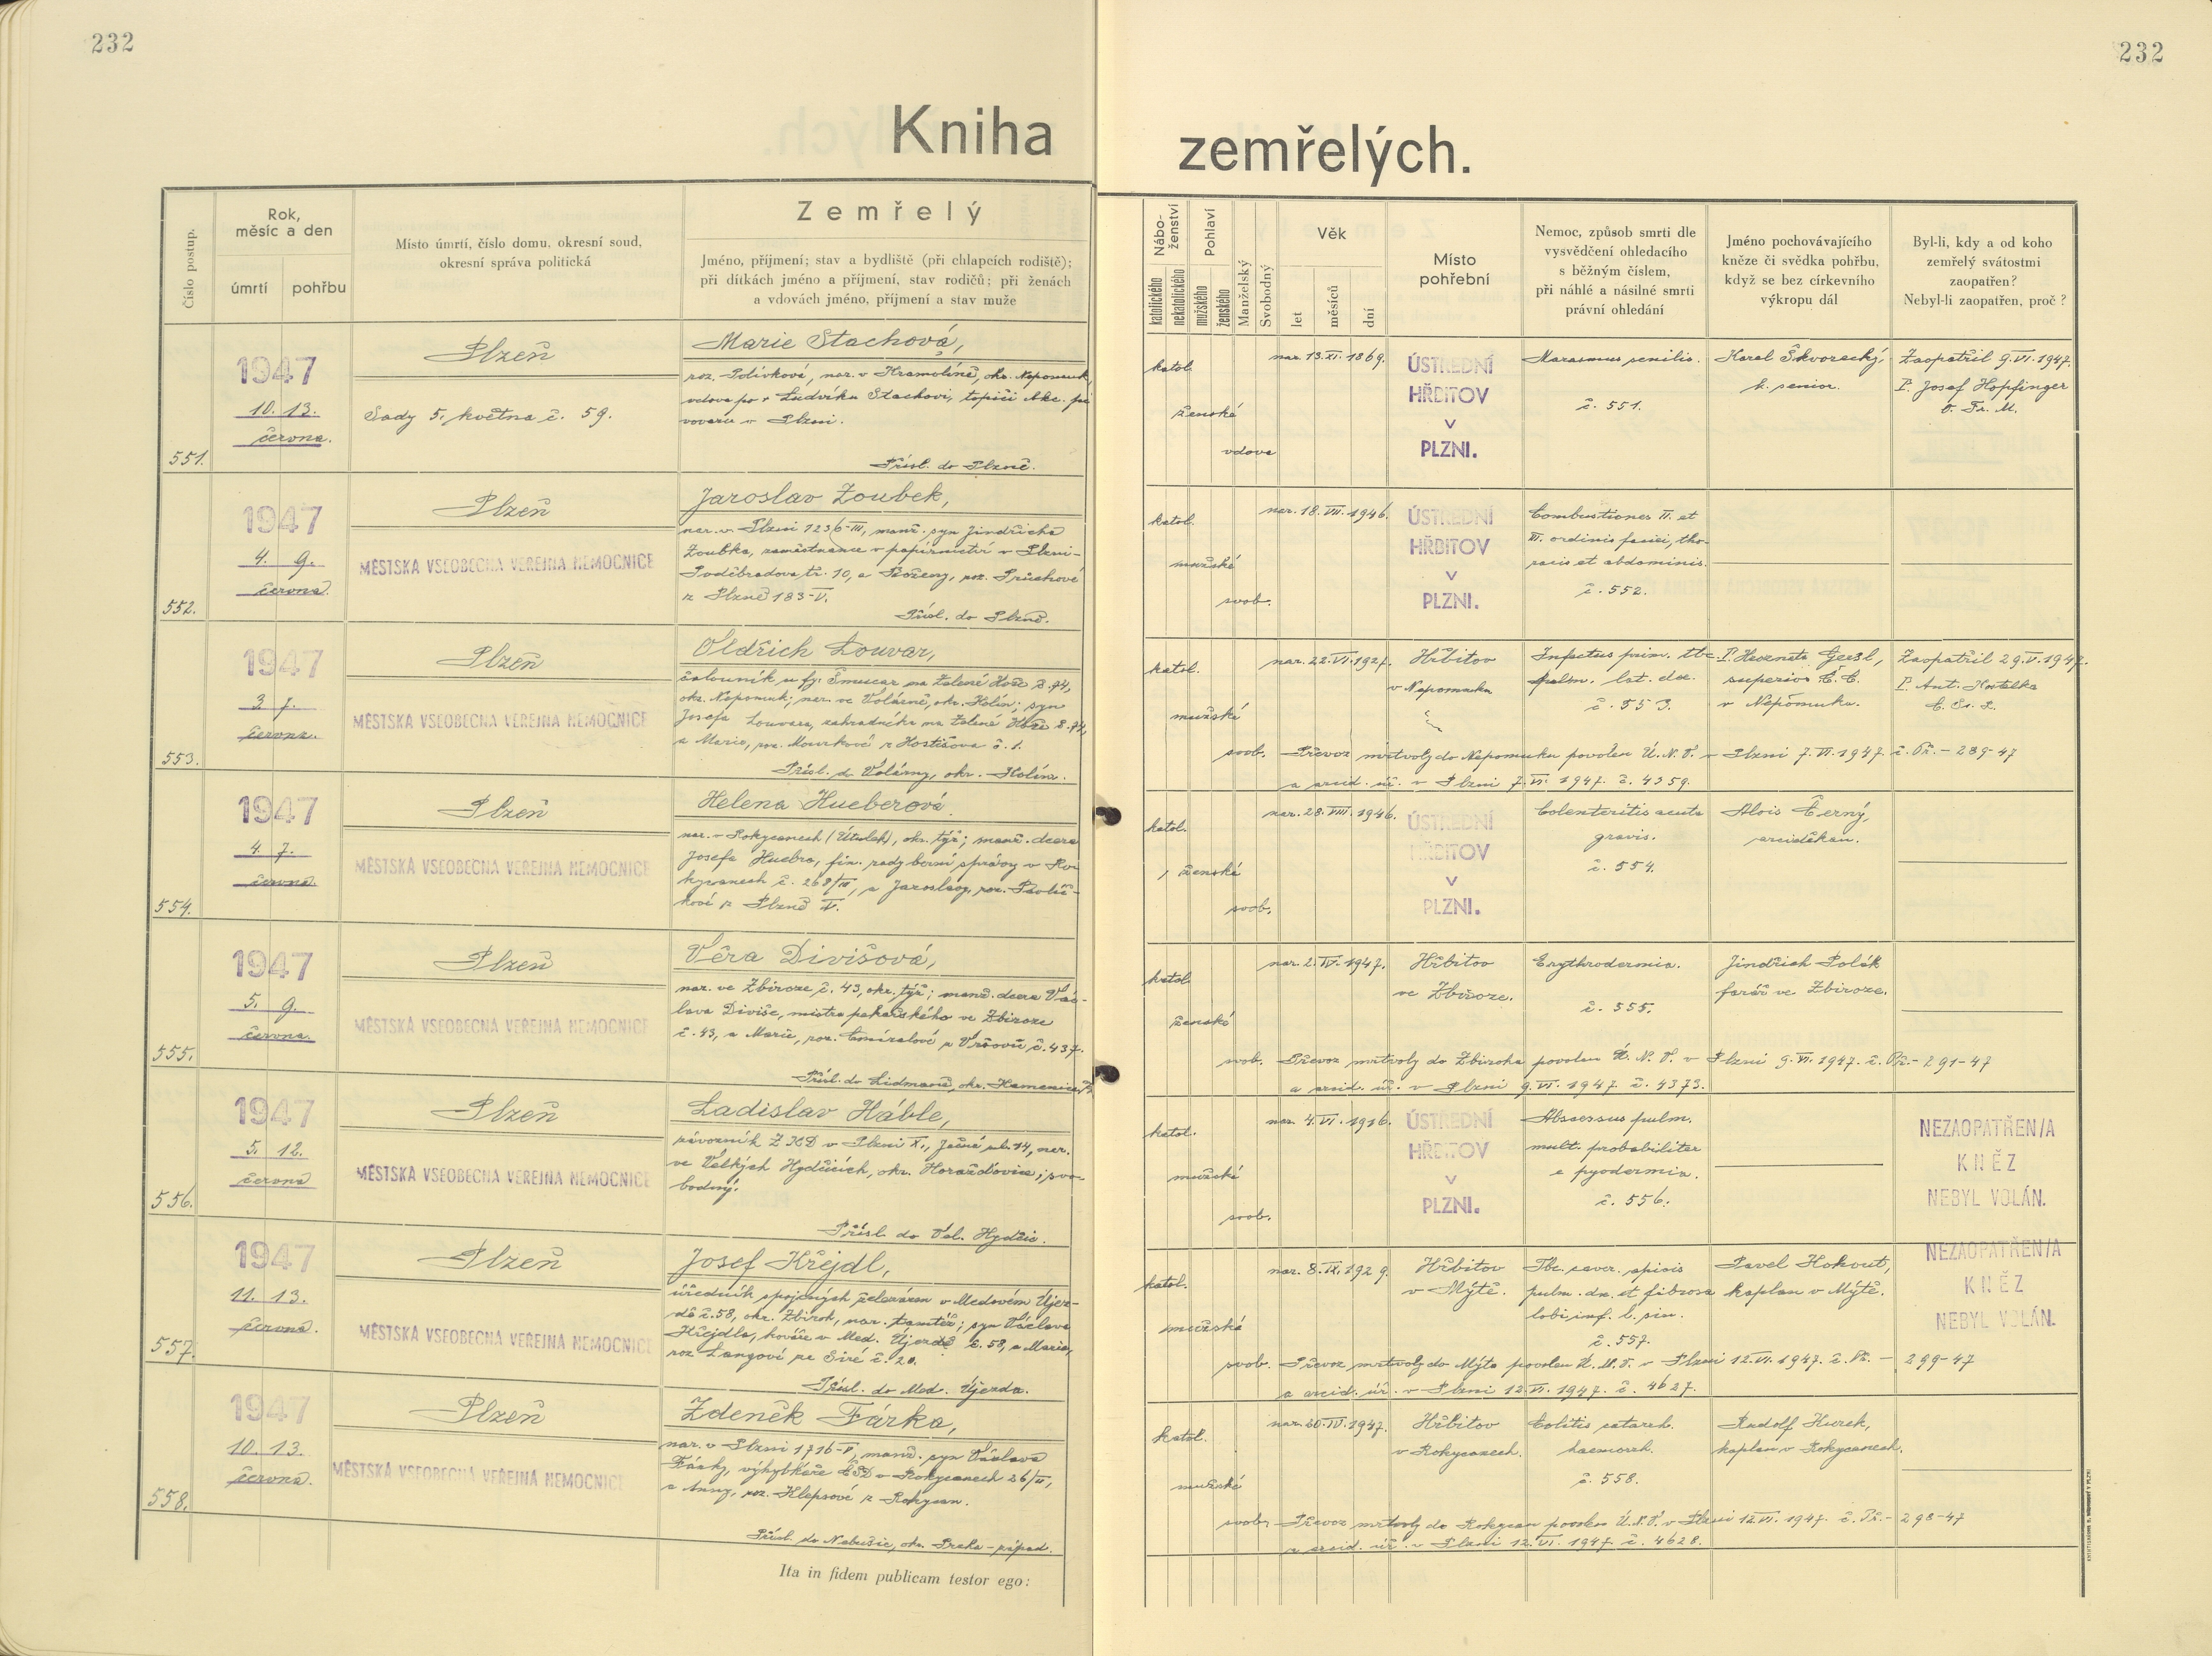 232
232
Kniha
zemřelých.
Číslo postup.
Rok,
měsíc a den
úmrtí
pohřbu
Místo úmrtí, číslo domu, okresní soud,
okresní správa politická
Zemřelý
Jméno, příjmení; stav a bydliště (při chlapcích rodiště);
při dítkách jméno a příjmení, stav rodičů; při ženách
a vdovách jméno, příjmení a stav muže
Nábo-
ženství
katolického
nekatolického
Pohlaví
mužského
ženského
Manželský
Svobodný
Věk
let
měsíců
dní
Místo
pohřební
Nemoc, způsob smrti dle
vysvědčení ohledacího
s běžným číslem,
při náhlé a násilné smrti
právní ohledání
Jméno pochovávajícího
kněze či svědka pohřbu,
když se bez církevního
výkropu dál
Byl-li, kdy a od koho
zemřelý svátostmi
zaopatřen?
Nebyl-li zaopatřen, proč?
551.
1947
10. 13.
června.
Plzeň
Sady 5. května č. 59.
Marie Stachová,
roz. Polívková, nar. v Kramolíně, okr. Nepomuk,
vdova po † Ludvíku Stachovi, topiči Akc. pi
vovaru v Plzni.
Přísl. do Plzně.
katol.
ženské
vdova
nar. 13. XI. 1869.
ÚSTŘEDNÍ
HŘBITOV
V
PLZNI.
Marasmus senilis.
č. 551.
Karel Škvorecký,
k. senior.
Zaopatřil 9. VI. 1947.
P. Josef Hopfinger
O. Fr. M.
552.
1947
4. 9.
června.
Plzeň
MĚSTSKÁ VŠEOBECNÁ VEŘEJNÁ NEMOCNICE
Jaroslav Zoubek,
nar. v Plzni 1236-III, manž. syn Jindřicha
Zoubka, zaměstnance v papírnictví v Plzni-
Poděbradova tř. 10, a Boženy, roz. Průchové
z Plzně 183-V.
Přísl. do Plzně.
katol.
mužské
svob.
nar. 18. VII. 1946.
ÚSTŘEDNÍ
HŘBITOV
V
PLZNI.
Combustiones II. et
III. ordinis faciei, tho-
racis et abdominis.
č. 552.
553.
1947
3 7.
června.
Plzeň
MĚSTSKÁ VŠEOBECNÁ VEŘEJNÁ NEMOCNICE
Oldřich Louvar,
čalouník u fy. Šmucar na Zelené Hoře č. 74,
okr. Nepomuk; nar. ve Volárně, okr. Kolín; syn
Josefa Louvara, zahradníka na Zelené Hoře č. 74,
a Marie, roz. Mourkové z Hostišova č. 1.
Přísl. do Volárny, okr. Kolín.
katol.
mužské
svob.
nar. 22. VI. 1927.
Hřbitov
v Nepomuku
Infectus prim. tbc.
pulm. lat. dx.
č. 553.
superior
v Nepomuku.
Zaopatřil 29. V. 1947.
P. Ant. Hostelka
Převoz mrtvoly do Nepomuku povolen Ú. N. V. v Plzni 7. VI. 1947. č. Př. - 289-47
a arcid. úř. v Plzni 7. VI. 1947. č. 4359.
554.
1947
4. 7.
června.
Plzeň
MĚSTSKÁ VŠEOBECNÁ VEŘEJNÁ NEMOCNICE
Helena Hueberová
nar. v Rokycanech (Útulek), okr. týž; manž. dcera
Josefa Huebra, fin. rady berní správy v Ro-
kycanech č. 268/II, a Jaroslavy, roz. Pavlíč-
kové z Plzně V.
katol.
ženské
svob.
nar. 28. VIII. 1946.
ÚSTŘEDNÍ
HŘBITOV
V
PLZNI.
Colenteritis acuta
gravis.
č. 554.
Alois Černý,
arciděkan.
555.
1947
5. 9.
června.
Plzeň
MĚSTSKÁ VŠEOBECNÁ VEŘEJNÁ NEMOCNICE
Věra Divišová,
nar. ve Zbiroze č. 43, okr. týž; manž. dcera Vác-
lava Diviše, mistra pekařského ve Zbiroze
č. 43, a Marie, roz. z Vršovic č. 437.
Přísl. do Lidmaně, okr. Kamenice
katol.
ženské
svob.
nar. 2. IV. 1947.
Hřbitov
ve Zbiroze.
Erythrodermia.
č. 555.
Jindřich Polák
farář ve Zbiroze.
Převoz mrtvoly do Zbiroha povolen Ú. N. V. v Plzni 9. VI. 1947. č. Př. - 291-47
a arcid. úř. v Plzni 9. VI. 1947. č. 4373.
556.
1947
5. 12.
června
Plzeň
MĚSTSKÁ VŠEOBECNÁ VEŘEJNÁ NEMOCNICE
Ladislav Háble,
závozník ZKD v Plzni X., Ječná ul. 14, nar.
ve Velkých Hydčicích, okr. Horažďovice; svo-
bodný.
Přísl. do Vel. Hydčic.
katol.
mužské
svob.
nar. 4. VI. 1916.
ÚSTŘEDNÍ
HŘBITOV
V
PLZNI.
Abscessus pulm.
mult. probabiliter
e pyodermia.
č. 556.
NEZAOPATŘEN/A
KNĚZ
NEBYL VOLÁN.
557.
1947
11. 13.
června.
Plzeň
MĚSTSKÁ VŠEOBECNÁ VEŘEJNÁ NEMOCNICE
Josef Křejdl,
úředník spojených železáren v Medovém Újez-
dě č. 58, okr. Zbiroh, nar. tamtéž; syn Václava
Křejdla, kováře v Med. Újezdě č. 58, a Marie,
roz. Langové ze Siré č. 20.
Přísl. do Med. Újezda.
katol.
mužské
svob.
nar. 8. IX. 1929.
Hřbitov
v Mýtě.
Tbc. caver. apicis
pulm. dx. et fibrosa
lobi inf. l. sin.
č. 557.
Pavel Kohout,
kaplan v Mýtě.
NEZAOPATŘEN/A
KNĚZ
NEBYL VOLÁN.
Převoz mrtvoly do Mýta povolen Ú. N. V. v Plzni 12. VI. 1947. č. Př. - 299-47
a arcid. úř. v Plzni 12. VI. 1947. č. 4627.
558.
1947
10. 13.
června.
Plzeň
MĚSTSKÁ VŠEOBECNÁ VEŘEJNÁ NEMOCNICE
Zdeněk Fárka,
nar. v Plzni 1716-V, manž. syn Václava
Fárky, výhybkáře ČSD v Rokycanech 26/II,
a Anny, roz. Klepsové z Rokycan.
Přísl. do Nebušic, okr. Praha-západ.
katol.
mužské
svob.
nar. 20. IV. 1947.
Hřbitov
v Rokycanech.
Colitis catarrh.
haemorrh.
č. 558.
Rudolf Hurek,
kaplan v Rokycanech.
Převoz mrtvoly do Rokycan povolen Ú. N. V. v Plzni 12. VI. 1947. č. Př. - 298-47
a arcid. úř. v Plzni 12. VI. 1947. č. 4628.
Ita in fidem publicam testor ego: